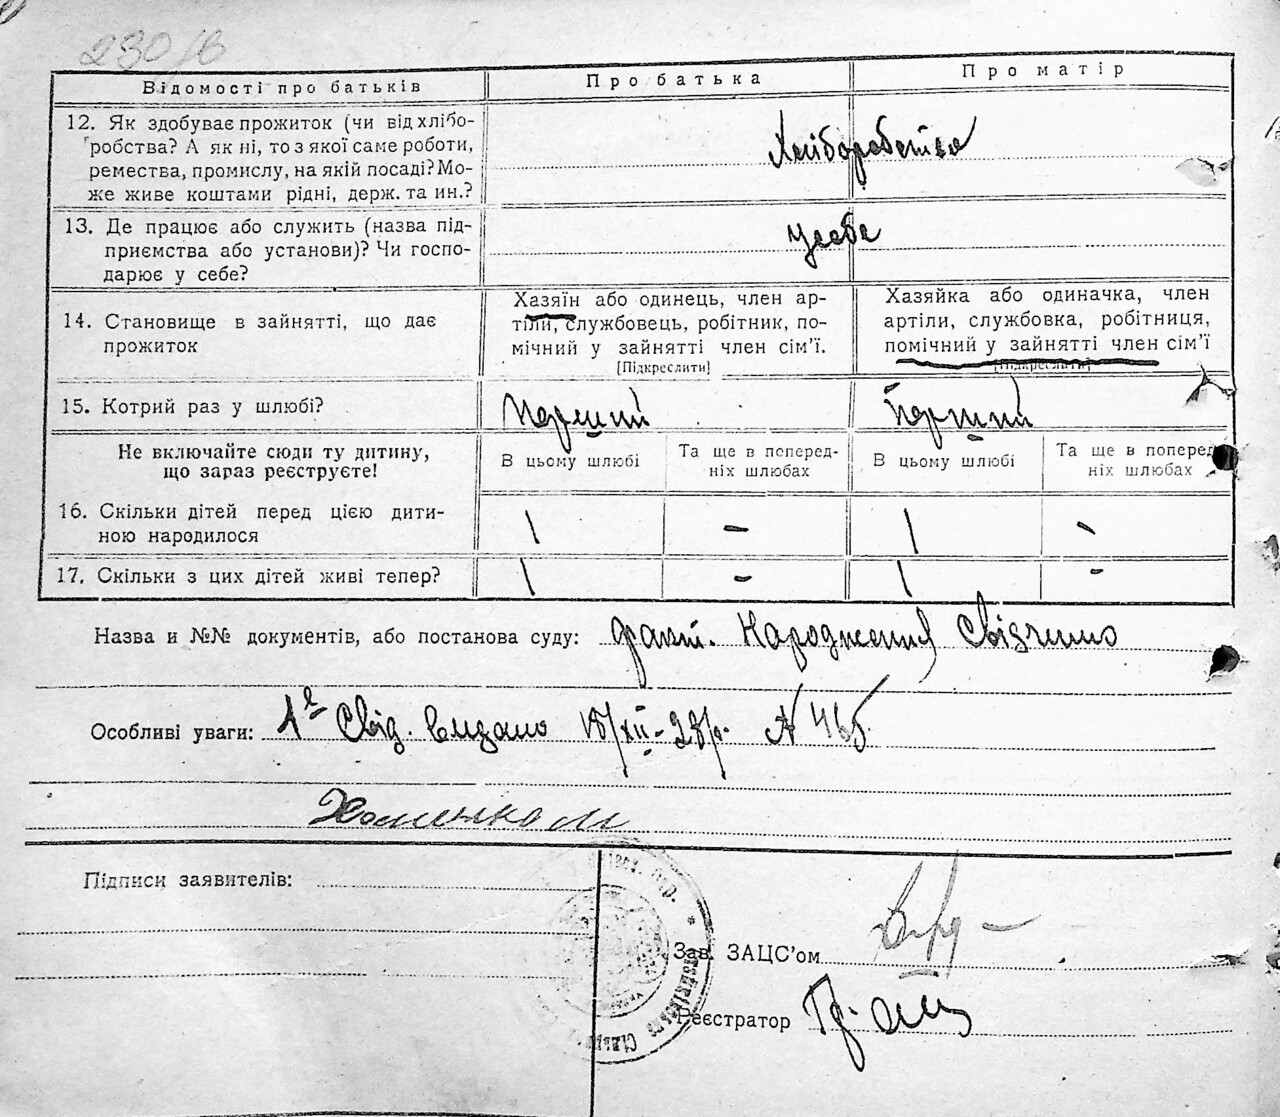 230/6
Відомості про батьків
Про батька
Про матір
12. Як здобуває прожиток (чи від хлібо-
робства? А як ні, то з якої саме роботи,
ремества, промислу, на якій посаді? Мо-
же живе коштами рідні, держ. та ин.?
Хліборобство
13. Де працює або служить (назва під-
приємства або установи)? Чи госпо-
дарює у себе?
усебе
14. Становище в зайнятті, що дає
прожиток
Хазяїн або одинець, член ар-
тіли, службовець, робітник, по-
мічний у зайнятті член сім'ї.
[Підкреслити]
Хазяйка або одиначка, член
артіли, службовка, робітниця,
помічний у зайнятті член сім'ї
[Підкреслити]
15. Котрий раз у шлюбі?
Перший
Перший
Не включайте сюди ту дитину,
що зараз реєструєте!
В цьому шлюбі
Та ще в поперед-
ніх шлюбах
В цьому шлюбі
Та ще в поперед-
ніх шлюбах
16. Скільки дітей перед цією дити-
ною народилося
1
-
1
-
17. Скільки з цих дітей живі тепер?
1
-
1
-
Назва и №№ документів, або постанова суду: факт. Народження Свідчено
Особливі уваги: Свід. видано XII-28р. N 465
Хоменко М
Підписи заявителів:
Зав. ЗАЦС'ом
Реєстратор